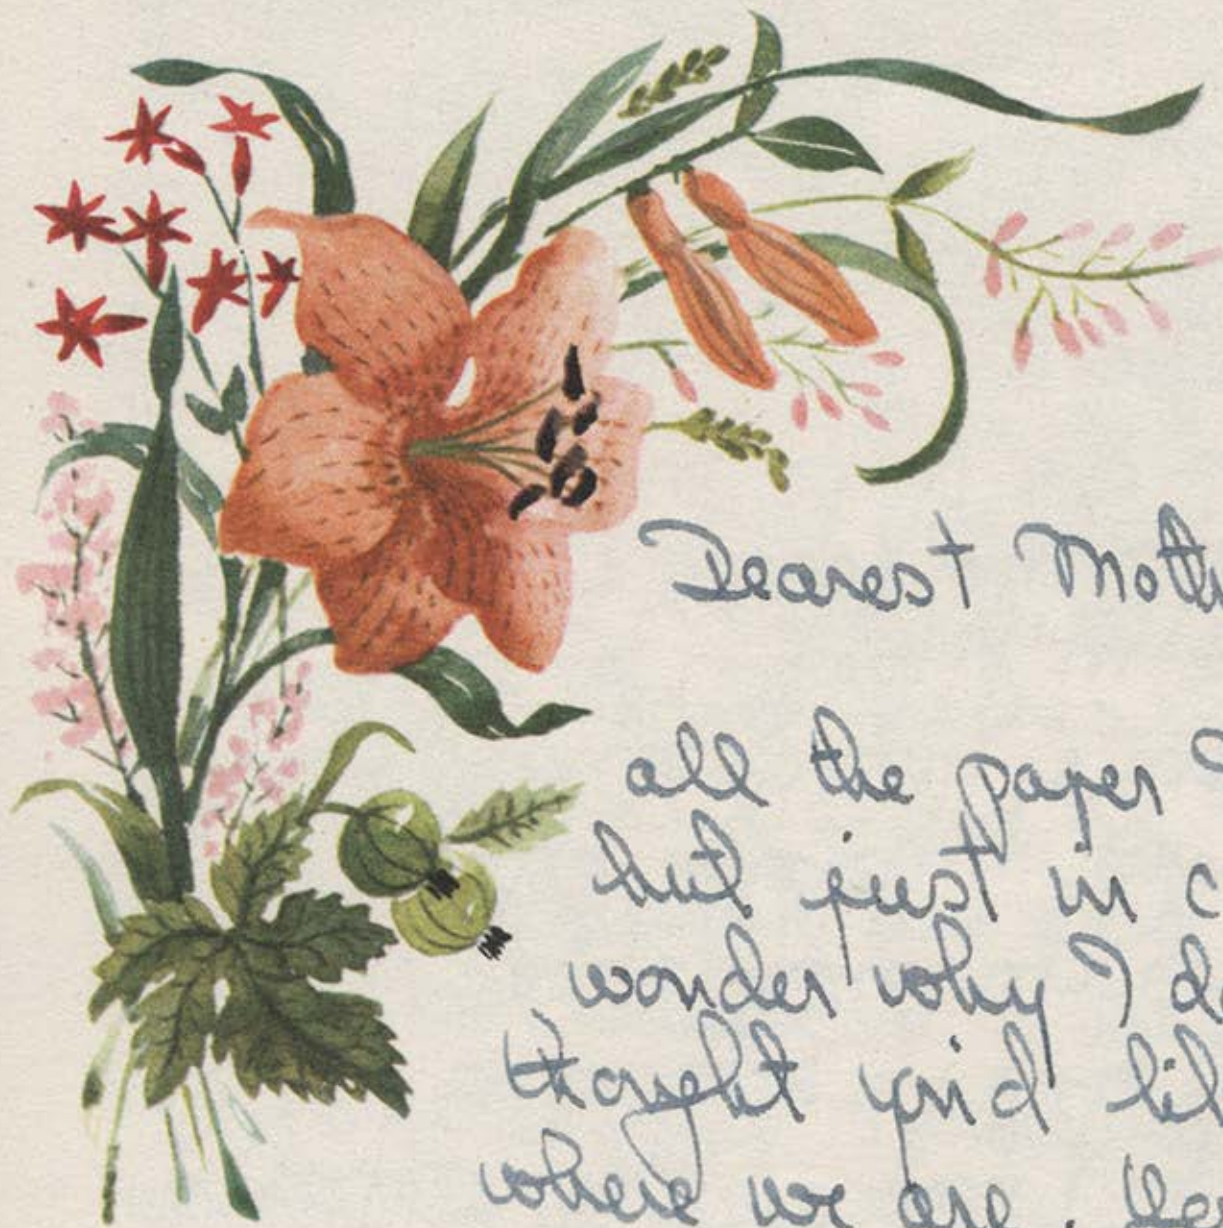 Dearest Moth
all the paper
but just in c
wonder why I d
thought you'd lik
where we are.